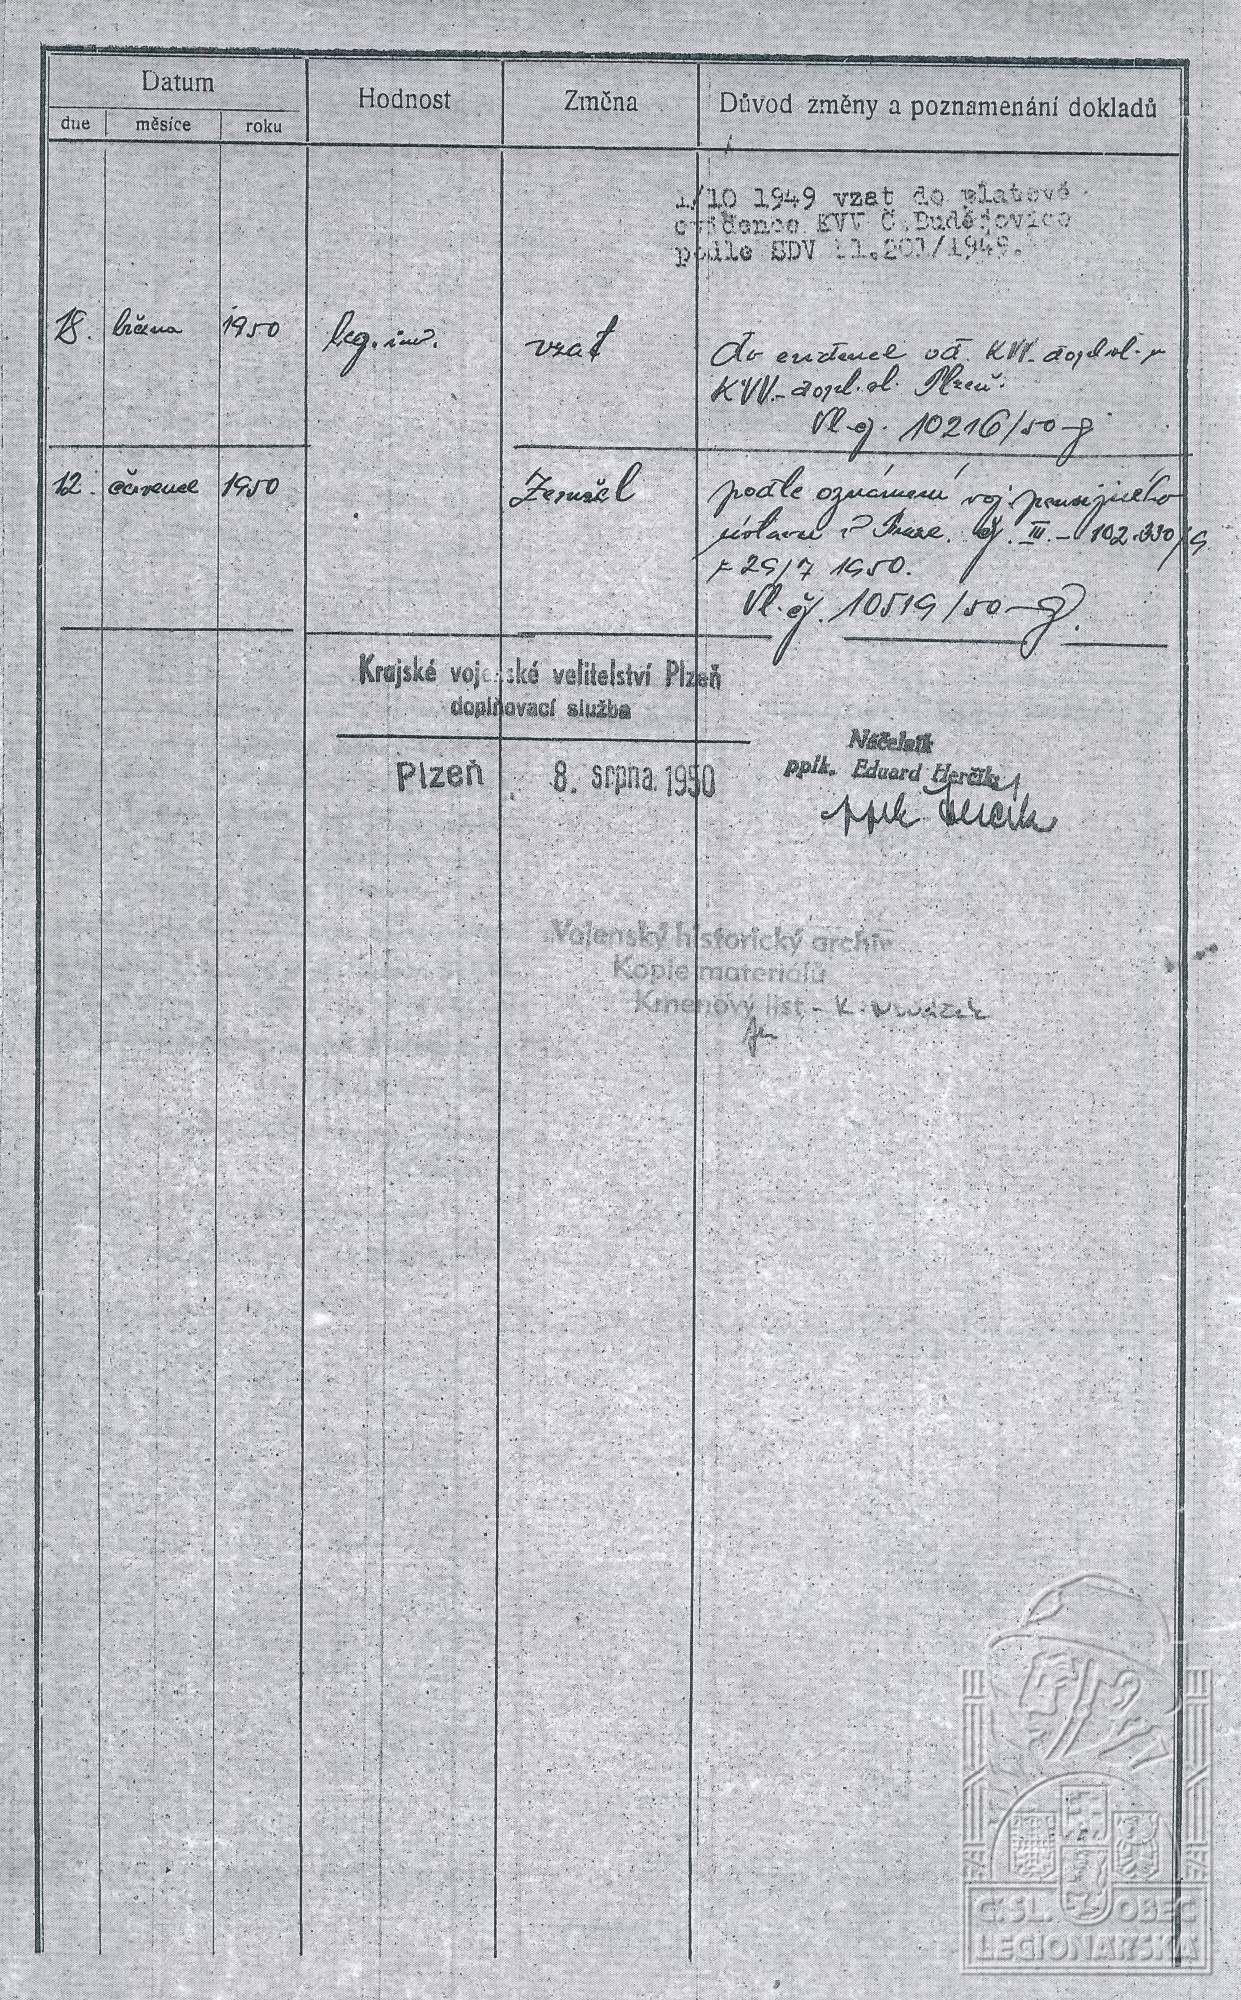 Datum
Hodnost
Změna
Důvod změny a poznamenání dokladů
dne
měsíce
roku
1/10 1949 vzat do platové
evidence KVV Č.Budějovice
podle SDV 11.201/1949.
18. března 1950 leg. inv. vzat
do evidence od KVV-
KVV.-dopl.sl. Plzeň.
Vl.čj. 10216/50-
12. července 1950 Zemřel
podle oznámení voj. pensijního
ústavu v Praze. čj. III.-102.330/
z 29/7 1950.
Vl.čj. 10519/50-
Krajské vojenské velitelství Plzeň
doplňovací služba
Plzeň 8. srpna 1950
Náčelník
pplk. Eduard Herčík
pplk Herčík
Vojenský historický archiv
Kopie materiálů
Kmenový list - K.
Č. SL. OBEC
LEGIONÁŘSKÁ